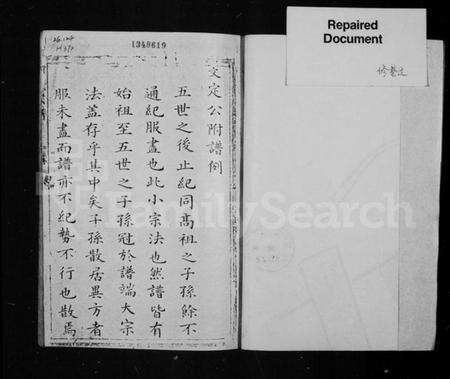 1348619
文定公附譜例
五世之後止紀同高祖之子孫餘不
通紀服盡也此小宗法也然譜皆有
始祖至五世之子孫冠於譜端大宗
法蓋存乎其中矣子孫散居異方者
服未盡而譜亦不紀勢不行也散焉
Repaired
Document
FamilySearch